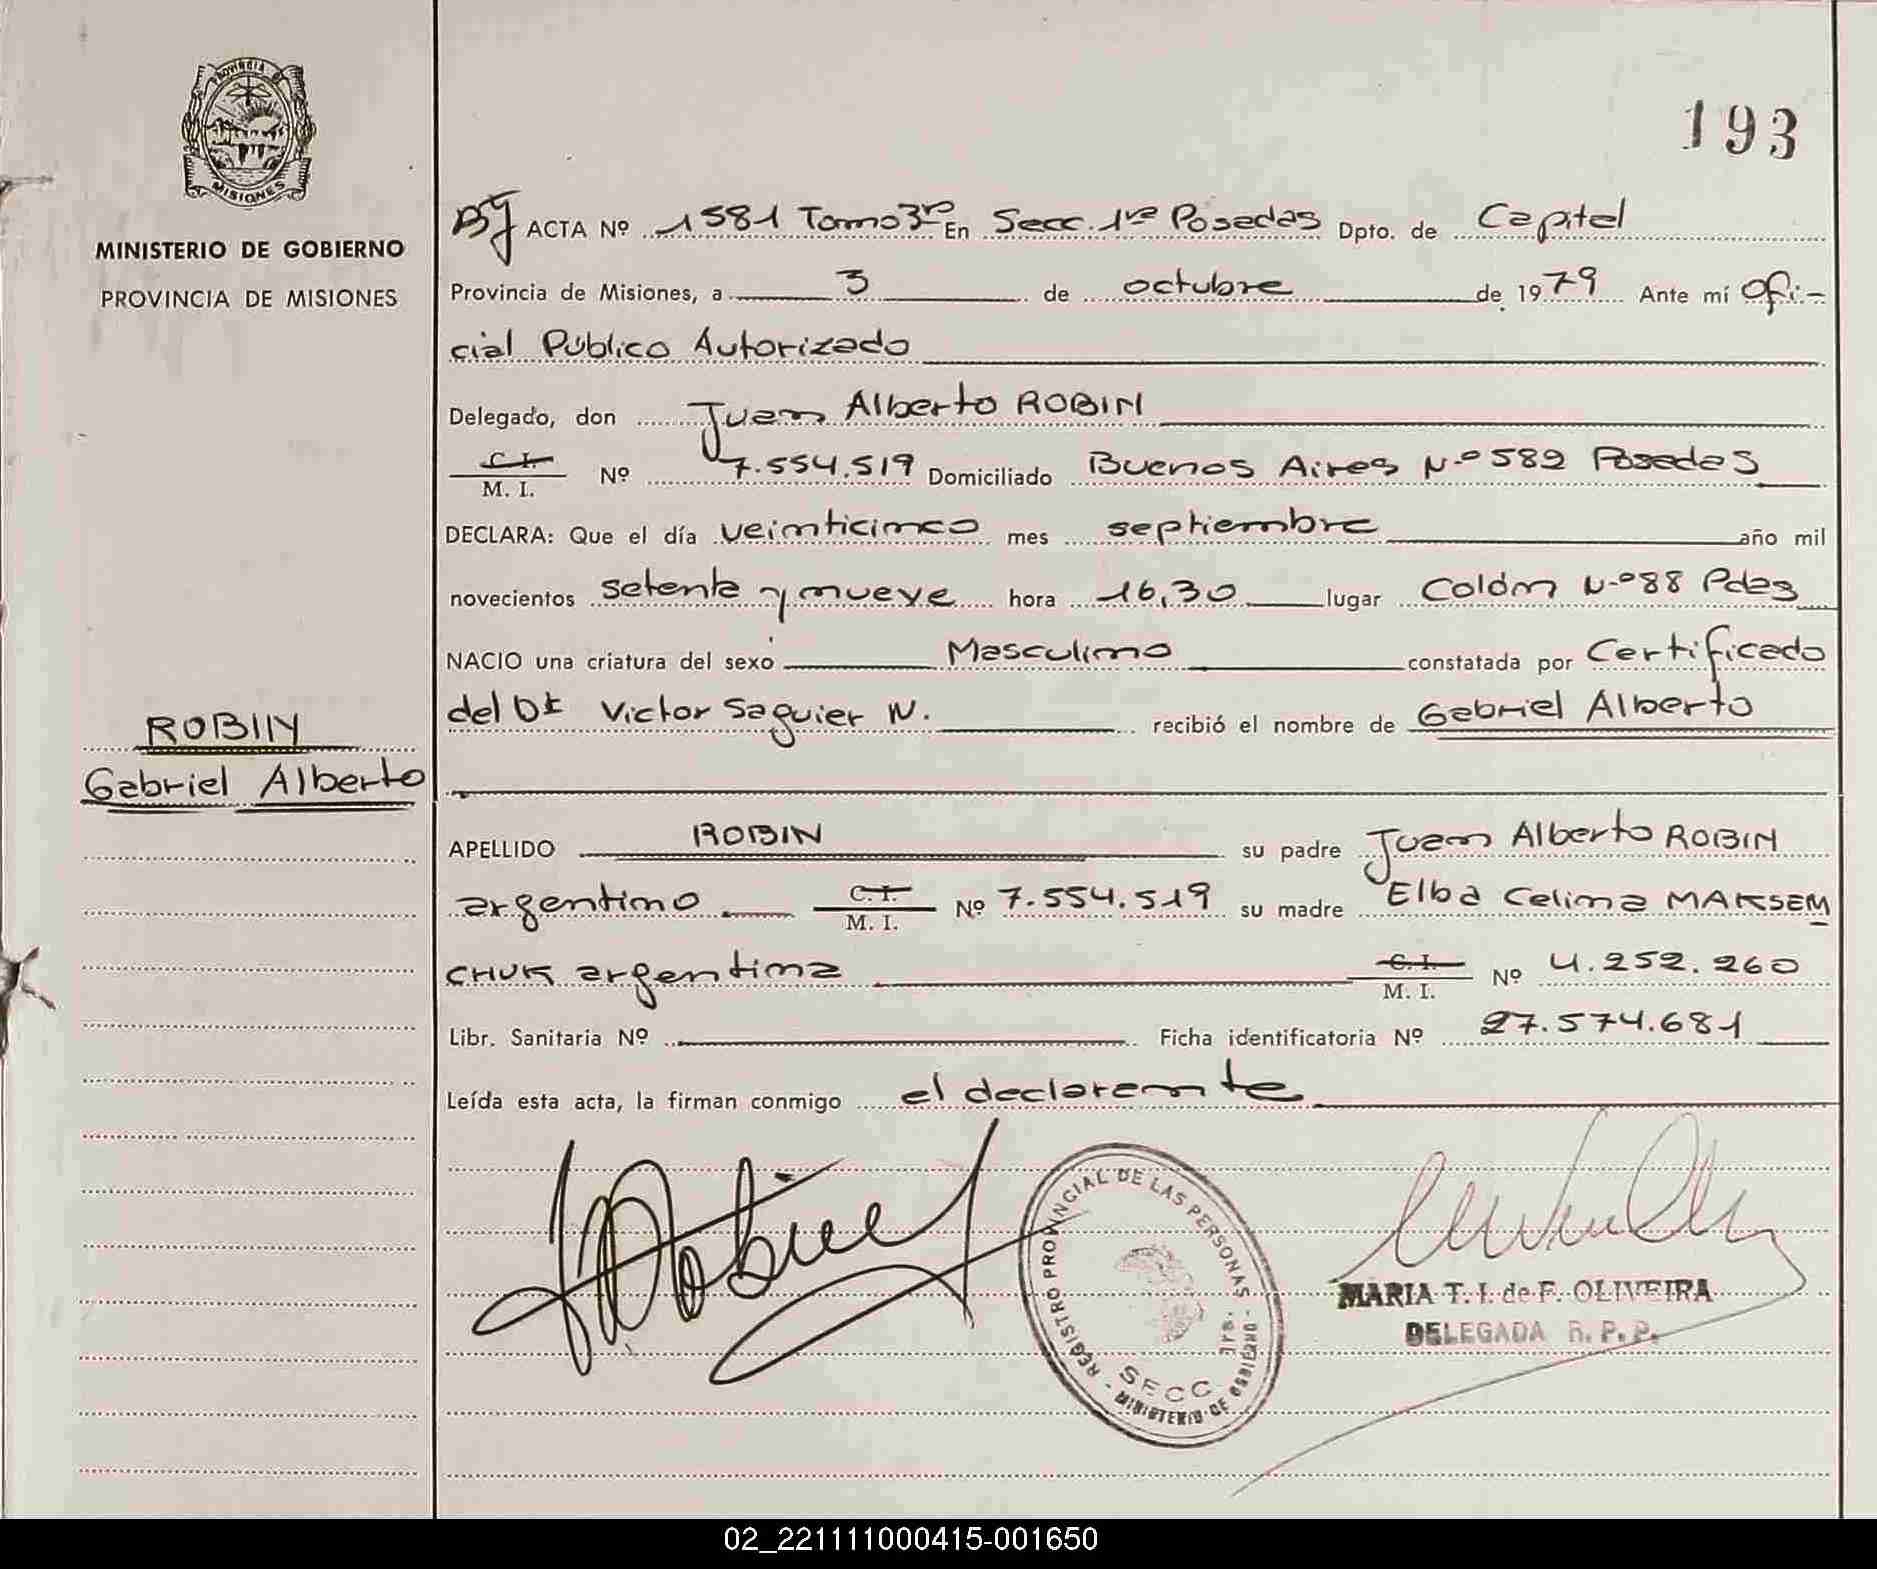 PROVINCIA DE
MISIONES
MINISTERIO DE GOBIERNO
PROVINCIA DE MISIONES
ROBIN
Gabriel Alberto
193
ACTA Nº 1581 Tomo 3ro En Secc. 1ra Posadas Dpto. de Capital
Provincia de Misiones, a 3 de octubre de 1979 Ante mí Ofi-
cial Público Autorizado
Delegado, don Juan Alberto ROBIN
C. I.
M. I. Nº 7.554.519 Domiciliado Buenos Aires Nº 582 Posadas
DECLARA: Que el día veinticinco mes septiembre año mil
novecientos setenta y nueve hora 16,30 lugar Colón Nº 88 Pdas
NACIO una criatura del sexo Masculino constatada por Certificado
del Dr Victor Saguier N. recibió el nombre de Gabriel Alberto
APELLIDO ROBIN su padre Juan Alberto ROBIN
argentino C. I. M. I. Nº 7.554.519 su madre Elba Celina MAKSEM
CHUK argentina C. I. M. I. Nº 4.252.260
Libr. Sanitaria Nº Ficha identificatoria Nº 27.574.681
Leída esta acta, la firman conmigo el declarante
REGISTRO PROVINCIAL DE LAS PERSONAS - MINISTERIO DE GOBIERNO -
SECC. 1ra.
MARIA T. I. de F. OLIVEIRA
DELEGADA R. P. P.
02_221111000415-001650